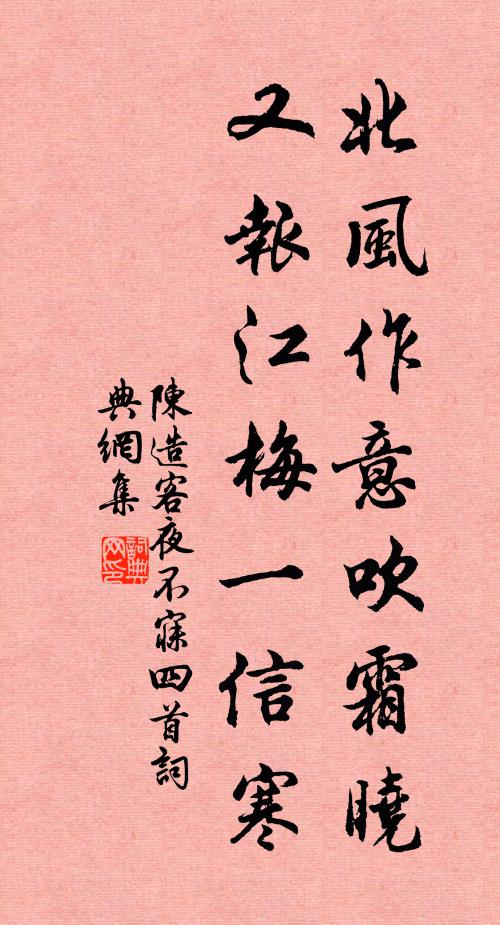 北風作意吹霜曉
又報江梅一信寒
陳造客夜不寐四首詞
典網集
詞典网印